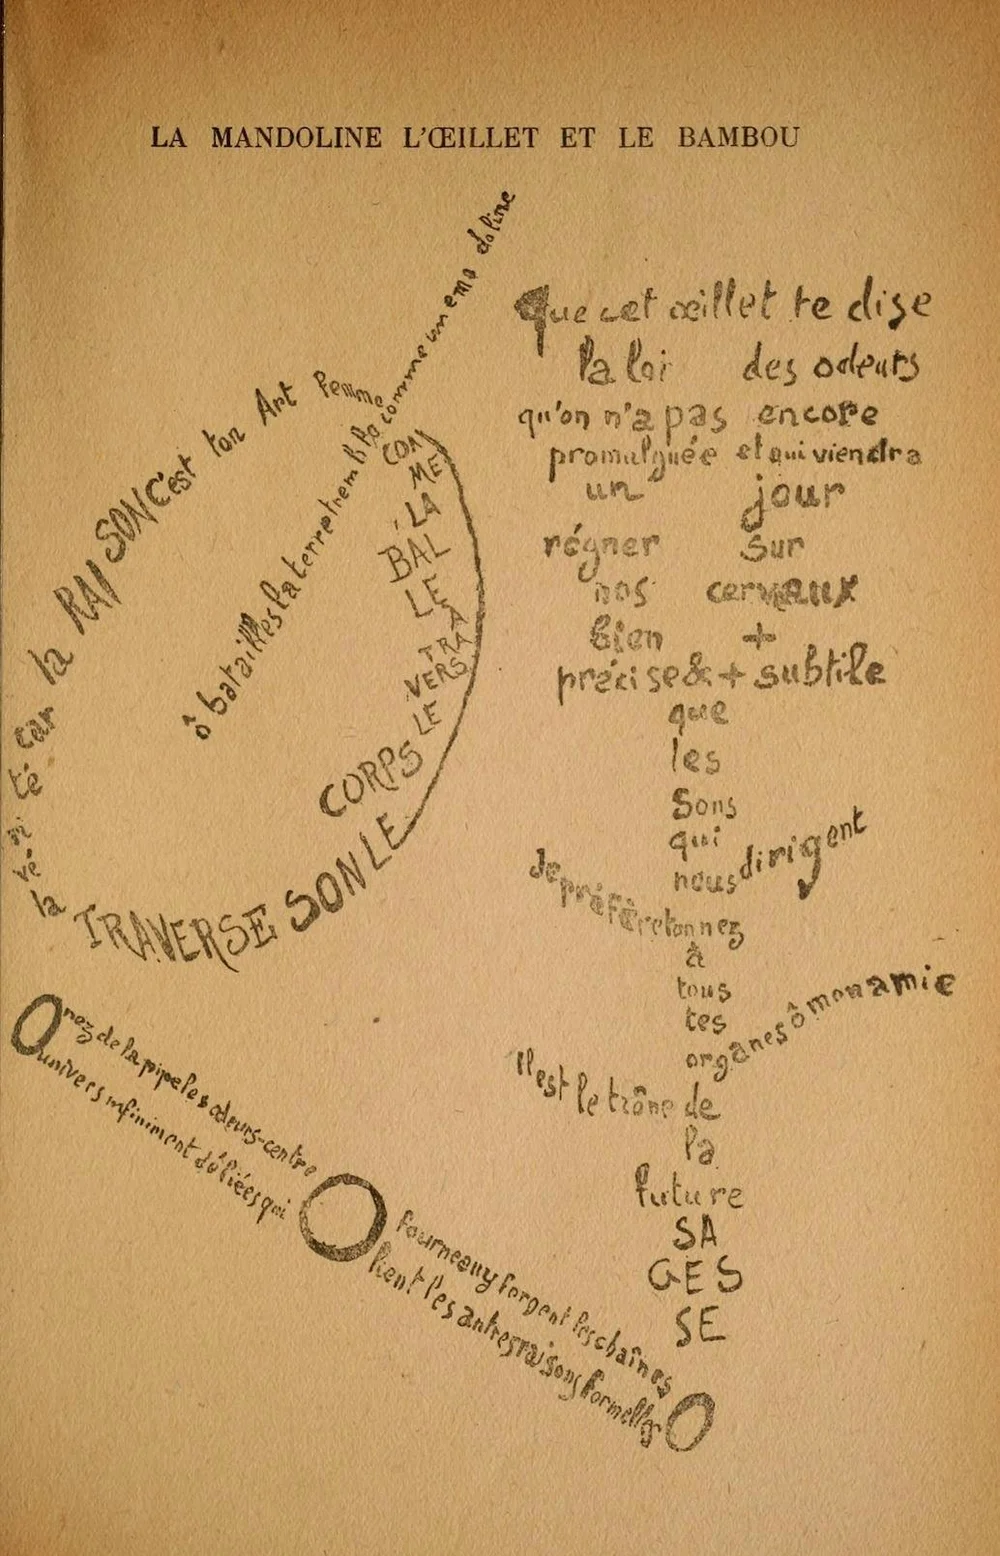 LA MANDOLINE L'ŒILLET ET LE BAMBOU
ô batailles la terre tremble comme une mandoline
COM
ME
LA
BAL
LE
À
TRA
VERS
LE
CORPS
LE SON TRAVERSE
la
vé
ri
té
car
la RAISON c'est ton Art Femme
Que cet œillet te dise
la loi des odeurs
qu'on n'a pas encore
promulguée et qui viendra
un jour
régner sur
nos cerveaux
bien +
précise & + subtile
que
les
sons
qui
nous dirigent
Je préfère ton nez
à
tous
tes
organes ô mon amie
Il est le trône de
la
future
SA
GES
SE
O nez de la pipe les odeurs-centre
O fourneau y forgent les chaînes
O univers infiniment déliées qui
lient les autres raisons formelles O